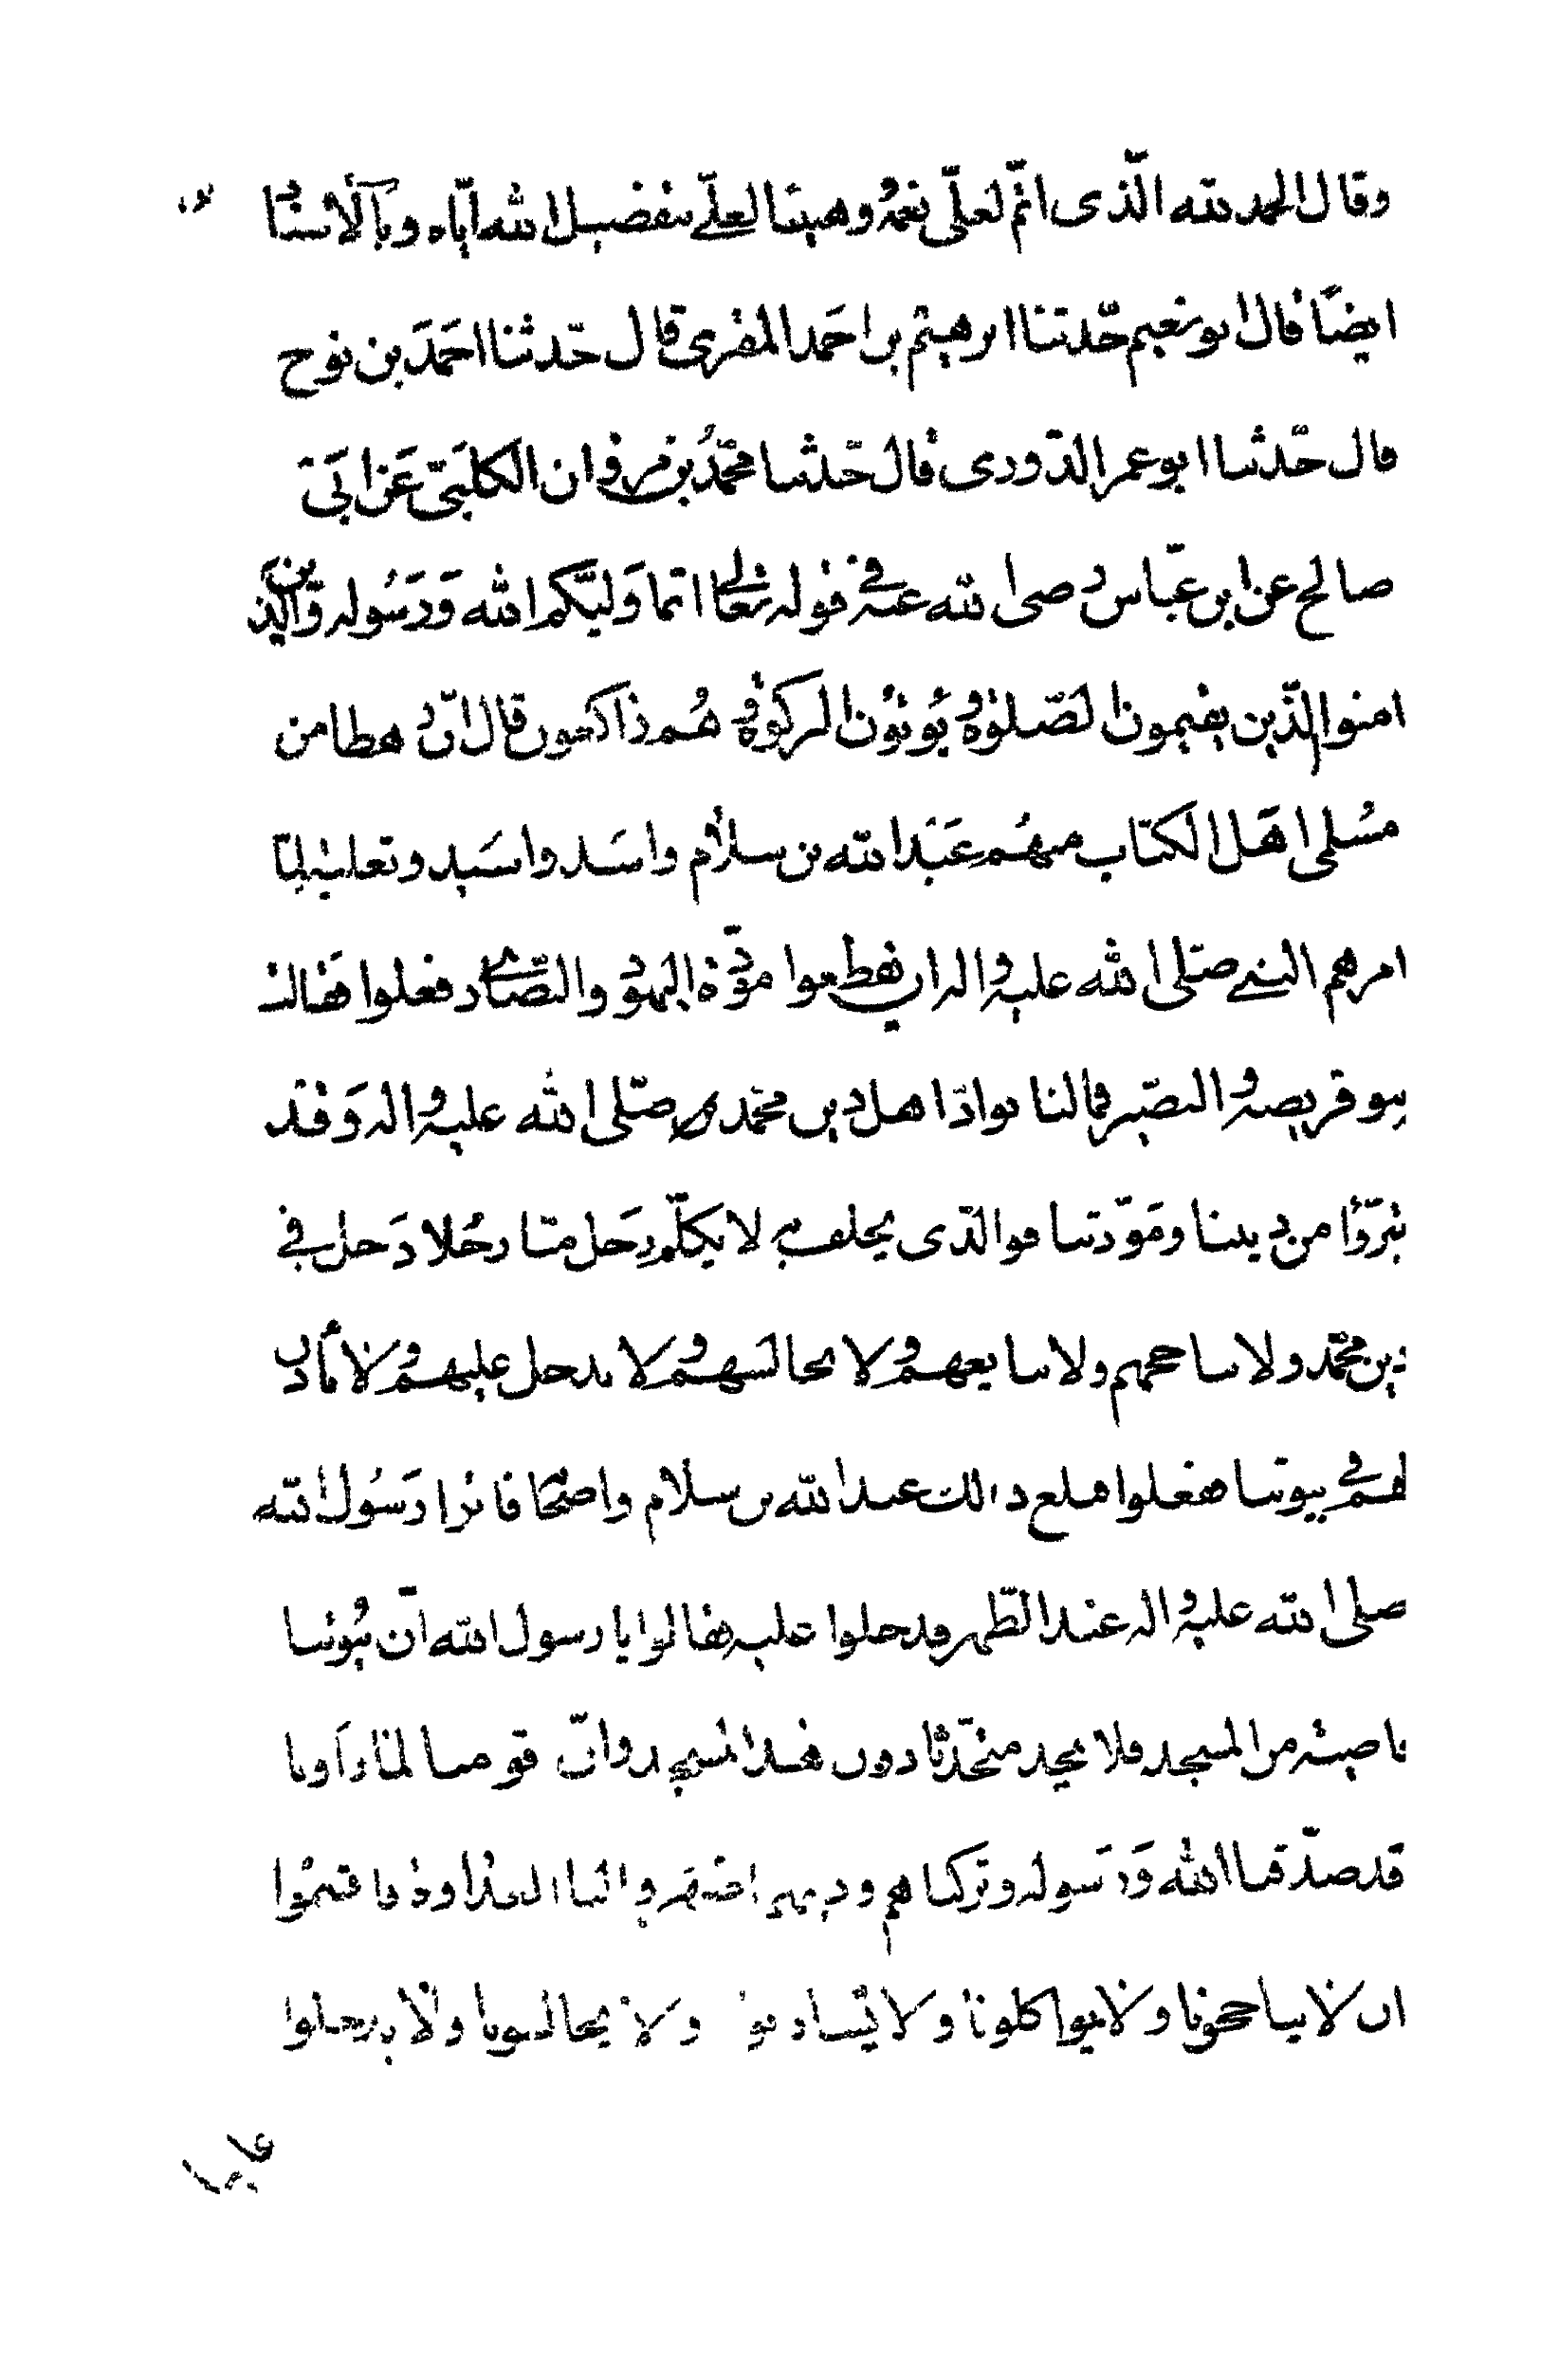 وقال الحمد لله الّذى اتمّ لعلّى نعمه وهنيئا لعلّى بتفضيل الله ايّاه وبالأسناد
ايضًا قال ابو نعيم حّدثنا ابرهيم بن احَمد المقرى قال حّدثنا احَمَد بن نوح
قال حّدثنا ابو عمر الدّورى قال حّدثنا محمّدُ بن مروان الكلَبىّ عَن ابَى
صالح عن ابن عبّاس رضى الله عنه فى قوله تعالى انّما وَليّكم الله وَرَسُوله وَالّذين
امنوا الّذين يقيمون الصّلوة ويُؤتوُن الزكوة وهُم راكعون قال انّ رهطا من
مسُلمى اهَل الكتّاب منهُم عَبَد الله بن سلام واسَد واسَيد وثعلبه لمّا
امرهم النبى صّلى الله عليه واله ان يقطعوا مودّة اليهود والنصّارى ففعلوا فقالت
بنو قريصه والنضّير فمالنا نوادّ اهل دين محمّد صّلى الله عليه واله وَقد
تبرّؤا من ديننا ومَودّتنا فوالّذى يحلف به لا يكلّم رَجل منّا رجُلا دَخل فى
دين محمّد ولا نناكحهم ولا نبايعهم ولا نجالسهم ولا ندخل عليهم ولا نأذن
لهم فى بيوتنا ففعلوا فبلغ ذالك عبد الله بن سلام واصحابه فاتوا رَسُول الله
صلى الله عليه واله عند الظّهر فدخلوا عليه فقالوا يا رسول الله انّ بُيوتنا
قاصية من المسجد فلا نجد متحّدثا دون هذا المسجد وانّ قومنا لمّا راَونا
قد صدّقنا الله وَرَسوله وتَركناهم ودينهم اظهروا لنا العداوة فاقسمُوا
ان لا يناكحونا ولا يواكلونا ولا يشاربونا ولا يجالسونا ولا يدخلوا
علينا